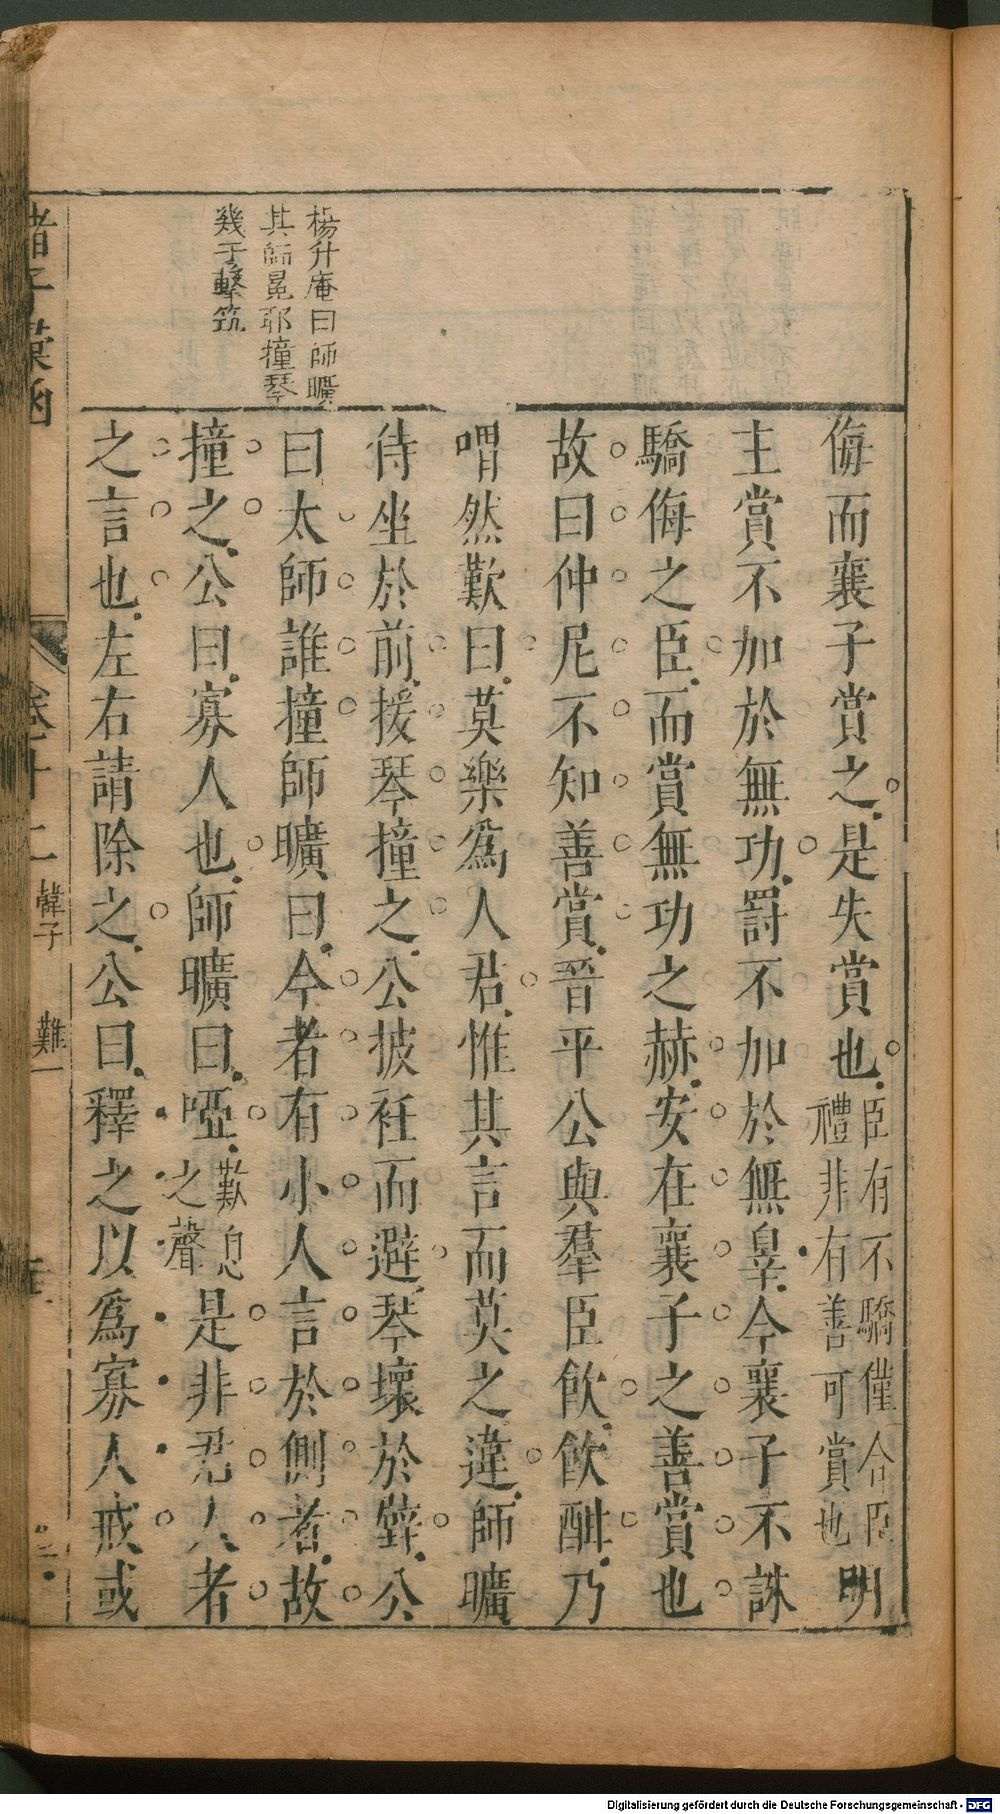 楊升庵曰師曠
其師冕耶撞琴
幾于擊筑
侮而襄子賞之是失賞也臣有不驕僅合臣禮非有善可賞也明
主賞不加於無功罰不加於無辠今襄子不誅
驕侮之臣而賞無功之赫安在襄子之善賞也
故曰仲尼不知善賞晉平公與羣臣飲飲酣乃
喟然歎曰莫樂爲人君惟其言而莫之違師曠
侍坐於前援琴撞之公披衽而避琴壞於壁公
曰太師誰撞師曠曰今者有小人言於側者故
撞之公曰寡人也師曠曰啞歎息之聲是非君人者
之言也左右請除之公曰釋之以爲寡人戒或
諸子彙函
卷十二
韓子
難一
Digitalisierung gefördert durch die Deutsche Forschungsgemeinschaft - DFG